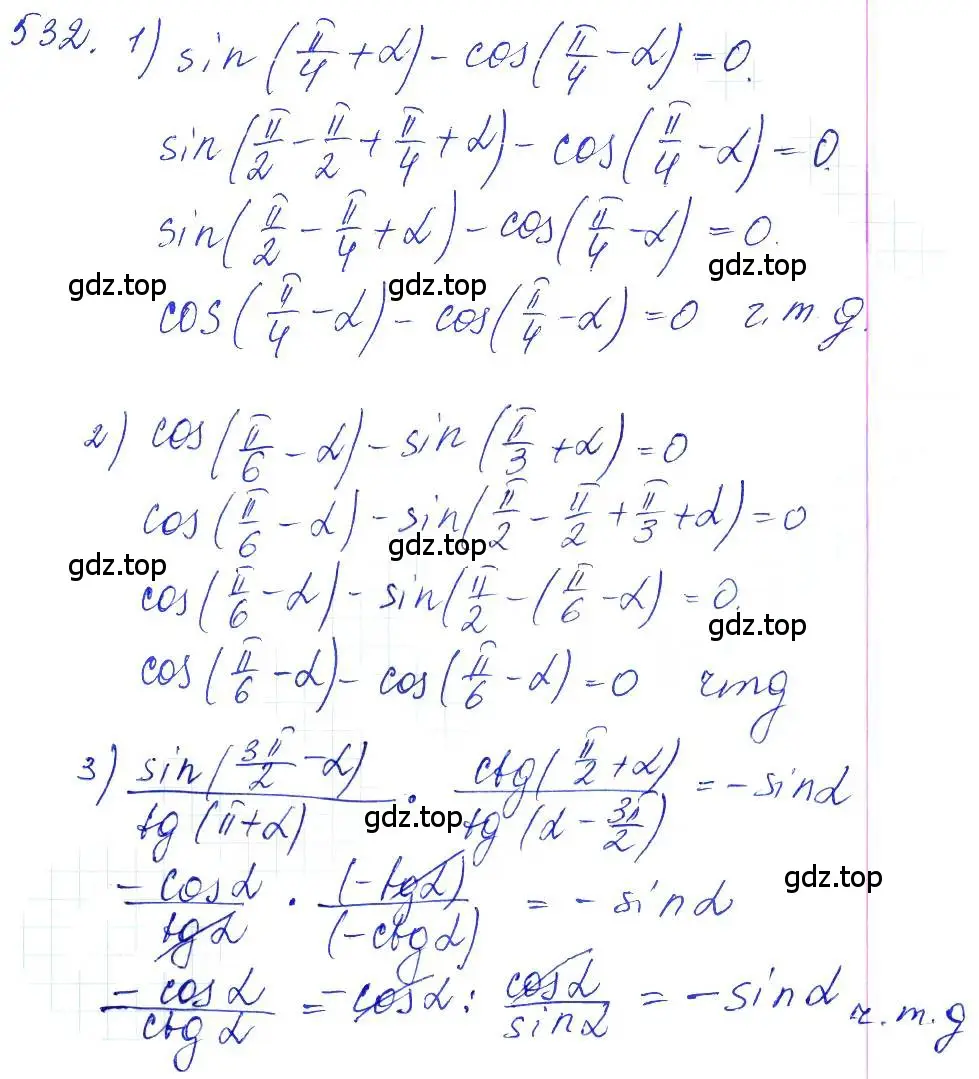 532. 1) sin(π/4 + α) - cos(π/4 - α) = 0.
sin(π/2 - π/2 + π/4 + α) - cos(π/4 - α) = 0.
sin(π/2 - π/4 + α) - cos(π/4 - α) = 0.
gdz.top gdz.top gdz.top
cos(π/4 - α) - cos(π/4 - α) = 0 ч.т.д.
2) cos(π/6 - α) - sin(π/3 + α) = 0
cos(π/6 - α) - sin(π/2 - π/2 + π/3 + α) = 0
gdz.top gdz.top
cos(π/6 - α) - sin(π/2 - (π/6 - α) = 0.
gdz.top
cos(π/6 - α) - cos(π/6 - α) = 0 чтд
3) sin(3π/2 - α)/tg(π + α) · ctg(π/2 + α)/tg(α - 3π/2) = - sinα
gdz.top
-cosα/tgα · (-tgα)/(-ctgα) = - sinα
gdz.top
-cosα/ctgα = -cosα : cosα/sinα = - sinα ч.т.д